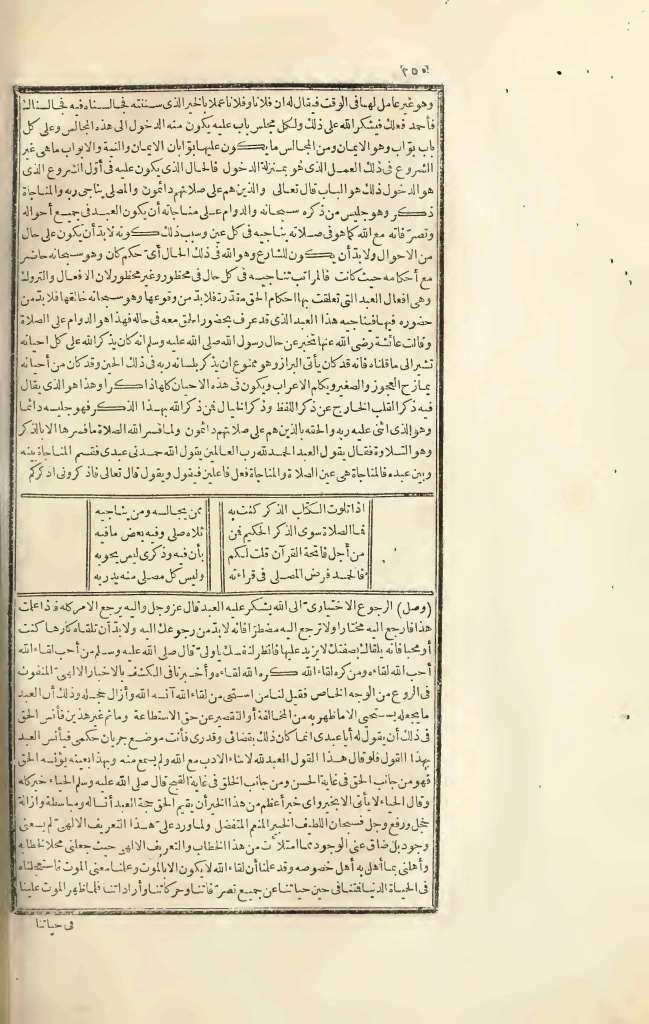 ٢٥٥
وهو غير عامل لها فى الوقت فيقال له ان فلانا وفلانا عملا بالخير الذى سننته فجالسناه فيه فجالسناك
فأحمد فعلك فيشكر الله على ذلك ولكل مجلس باب عليه يكون منه الدخول الى هذه المجالس وعلى كل
باب بواب وهو الايمان ومن المجالس ما يكون عليها بوابان الايمان والنية والابواب ما هى غير
الشروع فى ذلك العمل الذى هو بمنزلة الدخول فالحال الذى يكون عليه فى أول الشروع الذى
هو الدخول ذلك هو الباب قال تعالى والذين هم على صلاتهم دائمون والمصلى يناجى ربه والمناجاة
ذكر وهو جليس من ذكره سبحانه والدوام على مناجاته أن يكون العبد فى جميع أحواله
وتصرفاته مع الله كما هو فى صلاته يناجيه فى كل عين وسبب ذلك كونه لا بد أن يكون على حال
من الاحوال ولا بد أن يكون للشارع وهو الله فى ذلك الحال أى حكم كان وهو سبحانه حاضر
مع أحكامه حيث كانت فالمراتب تناجيه فى كل حال فى محظور وغير محظور لان الافعال والتروك
وهى افعال العبد التى تعلقت بها أحكام الحق مقدرة فلا بد من وقوعها وهو سبحانه خالقها فلا بد من
حضوره فيها فيناجيه هذا العبد الذى قد عرف بحضور الحق معه فى حاله فهذا هو الدوام على الصلاة
وقالت عائشة رضى الله عنها تخبر عن حال رسول الله صلى الله عليه وسلم انه كان يذكر الله على كل احيانه
تشير الى ما قلناه فانه قد كان يأتى البراز وهو ممنوع ان يذكر بلسانه ربه فى ذلك الحين وقد كان من أحيانه
يمازح العجوز والصغير ويكلم الاعراب ويكون فى هذه الاحيان كلها ذاكرا وهذا هو الذى يقال
فيه ذكر القلب الخارج عن ذكر اللفظ وذكر الخيال فمن ذكر الله بهذا الذكر فهو جليسه دائما
وهو الذى اثنى عليه ربه والحقه بالذين هم على صلاتهم دائمون ولما فسر الله الصلاة ما فسرها الا بالذكر
وهو التلاوة فقال يقول العبد الحمد لله رب العالمين يقول الله حمدنى عبدى فقسم المناجاة بينه
وبين عبده فالمناجاة هى عين الصلاة والمناجاة فعل فاعلين فيقول ويقول قال تعالى فاذكرونى اذكركم
اذا تلوت الكتاب الذكر كنت به ممن يجالسه ومن يناجيه
فما الصلاة سوى الذكر الحكيم فمن تلاه صلى وفيه بعض مافيه
من أجل فاتحة القرآن قلت لكم بأن فيه وذكرى ليس يحويه
فالحمد فرض المصلى فى قراءته وليس كل مصلى منه يدريه
(وصل) الرجوع الاختيارى الى الله يشكر عليه العبد قال عز وجل واليه يرجع الامر كله فاذا علمت
هذا فارجع اليه مختارا ولا ترجع اليه مضطرا فانه لا بد من رجوعك اليه ولا بد أن تلقاه كارها كنت
أو محبا فانه يلقاك بصفتك لا يزيد عليها فانظر لنفسك ياولى قال صلى الله عليه وسلم من أحب لقاء الله
أحب الله لقاءه ومن كره لقاء الله كره الله لقاءه وأخبرنا فى الكشف بالاخبار الالهى المنفوث
فى الروع من الوجه الخاص فقيل لنا من استحى من لقاء الله آنسه الله وأزال خجله وذلك أن العبد
ما يجعله يستحيى الا ما ظهر به من المخالفة أو التقصير عن حق الاستطاعة وماثم غير هذين فأنس الحق
فى ذلك أن يقول له أيا عبدى انما كان ذلك بقضائى وقدرى فأنت موضع جريان حكمى فيأنس العبد
بهذا القول فلو قال هذا القول العبد لله لاساء الادب مع الله ولم يسمع منه وبهذا بعينه يؤنسه الحق
فهو من جانب الحق فى غاية الحسن ومن جانب الخلق فى غاية القبح قال صلى الله عليه وسلم الحياء خير كله
وقال الحياء لا يأتى الا بخير وأى خير أعظم من هذا الخير أن يقيم الحق حجة العبد أنسا له ومباسطة وازالة
خجل ورفع وجل فسبحان اللطيف الخبير المنعم المتفضل ولما ورد على هذا التعريف الالهى لم يسعنى
وجود بل ضاق عنى الوجود مما امتلأت من هذا الخطاب والتعريف الالهى حيث جعلنى محلا لخطابه
وأهلنى بما أهل به أهل خصوصه وقد علمنا أن لقاء الله لا يكون الا بالموت وعلمنا معنى الموت فاستعجلناه
فى الحياة الدنيا فمتنا فى حين حياتنا عن جميع تصرفاتنا وحركاتنا وأراداتنا فلما ظهر الموت علينا
فى حياتنا